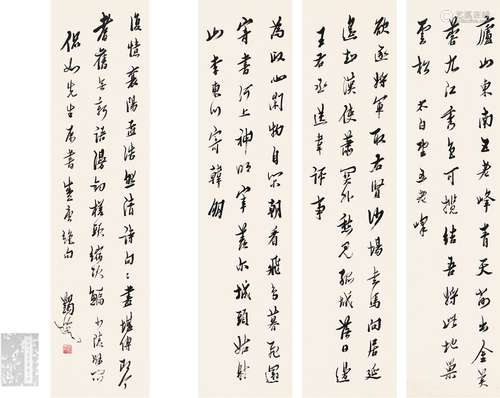 廬山東南五老峰青天削出金芙
蓉九江秀色可攬結吾將此地巢
雲松 太白望五老峰
欲逐將軍取右賢沙場走馬向居延
遙知漢使蕭關外愁見孤城落日邊
王右丞送韋評事
為政心閑物自閑朝看飛鳥暮飛還
寄書河上神明宰羨爾城頭姑射
山 李東川寄韓鵬
復憶襄陽孟浩然清詩句〻盡堪傳即今
耆舊無新語漫釣槎頭縮頸鯿 少陵解悶
侃如先生屬書盛唐絕句